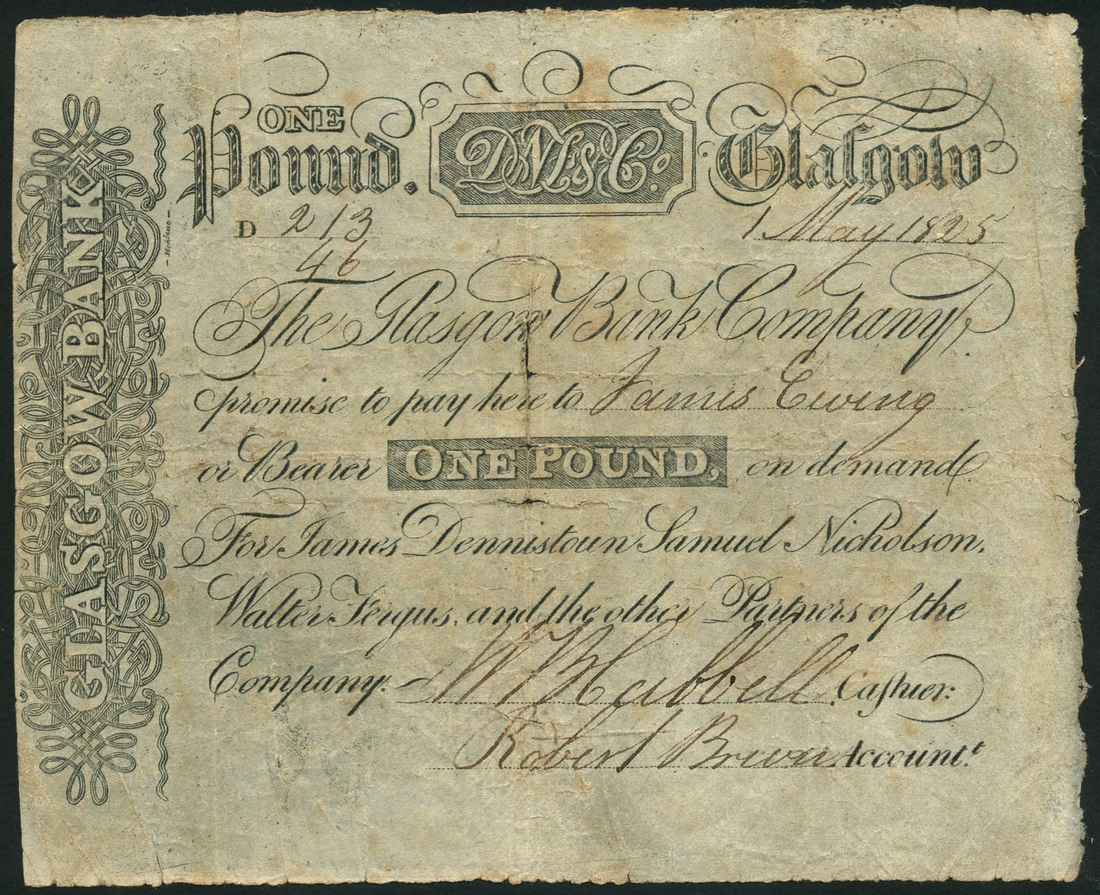 GLASGOW BANK
ONE
Pound. DNFs & Co. Glaſgow
D 213 1 May 1825
46
The Glasgow Bank Company,
promise to pay here to James Ewing
or Bearer ONE POUND, on demand
For James Dennistoun Samuel Nicholson,
Walter Fergus, and the other Partners of the
Company. Caſhier:
Robert Accountt